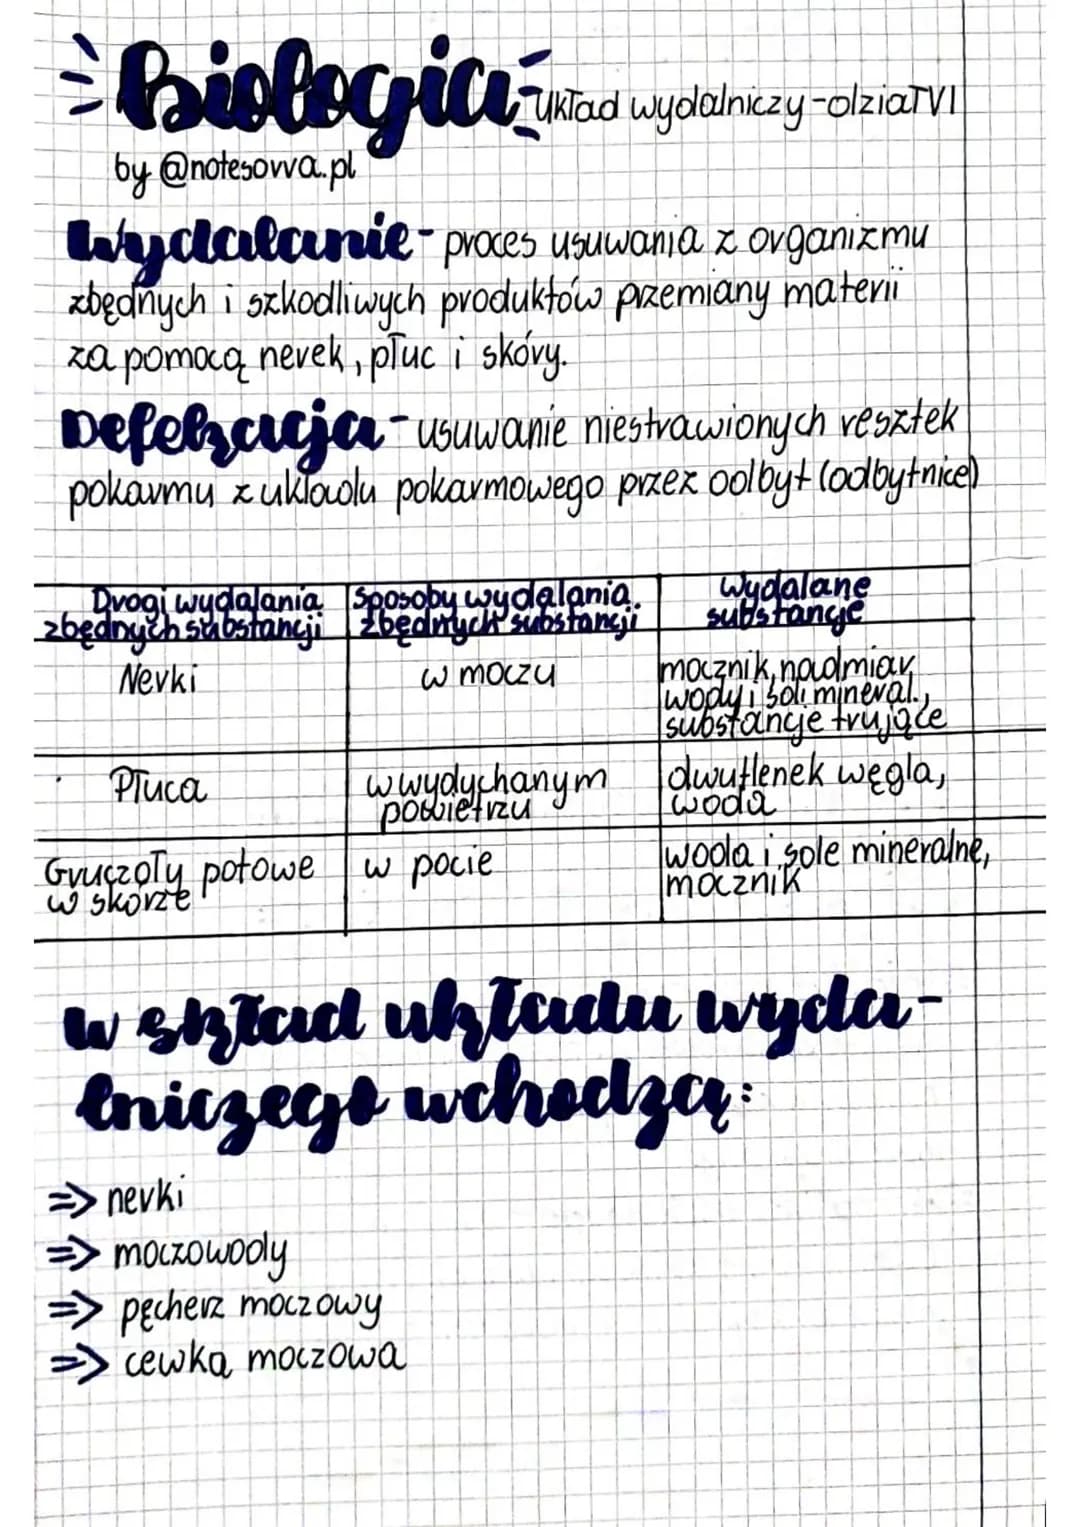 Biologia - układ wydalniczy - dział VI
by @notesowa.pl
Wydalanie - proces usuwania z organizmu
zbędnych i szkodliwych produktów przemiany materii
za pomocą nerek, płuc i skóry.
Defekacja - usuwanie niestrawionych resztek
pokarmu z układu pokarmowego przez odbyt (odbytnice)
Drogi wydalania zbędnych substancji | Sposoby wydalania zbędnych substancji | Wydalane substancje
Nerki | w moczu | mocznik, nadmiar wody i soli mineral., substancje trujące
Płuca | w wydychanym powietrzu | dwutlenek węgla, woda
Gruczoły potowe w skórze | w pocie | woda i sole mineralne, mocznik
W skład układu wyda-
lniczego wchodzą:
=> nerki
=> moczowody
=> pęcherz moczowy
=> cewka moczowa